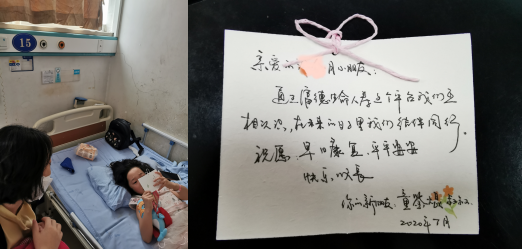 15
亲爱的 月小朋友:
通过富德生命人寿这个平台我们互
相认识,在未来的日子里我们结伴同行。
祝愿 早日康复、平平安安
快乐成长
你的新朋友:
2020年7月